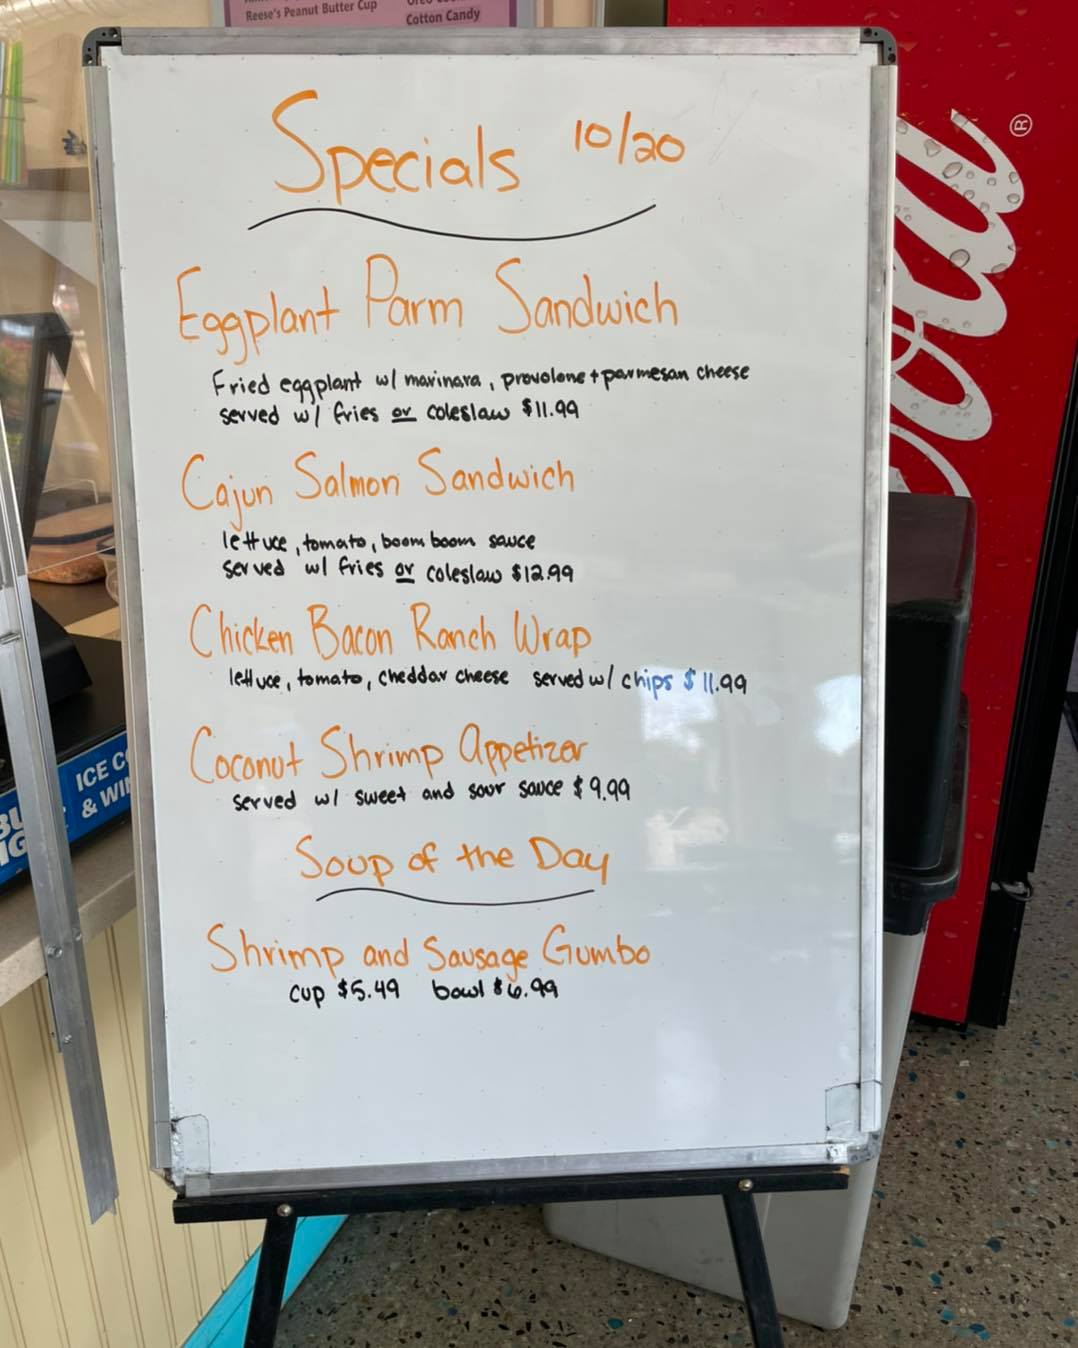 Reese's Peanut Butter Cup
Cotton Candy
Specials 10/20
Eggplant Parm Sandwich
Fried eggplant w/ marinara, provolone + parmesan cheese
served w/ fries or coleslaw $11.99
Cajun Salmon Sandwich
lettuce, tomato, boom boom sauce
served w/ fries or coleslaw $12.99
Chicken Bacon Ranch Wrap
lettuce, tomato, cheddar cheese served w/ chips $11.99
Coconut Shrimp Appetizer
served w/ sweet and sour sauce $9.99
Soup of the Day
Shrimp and Sausage Gumbo
cup $5.49 bowl $6.99
ICE C
& WI
®